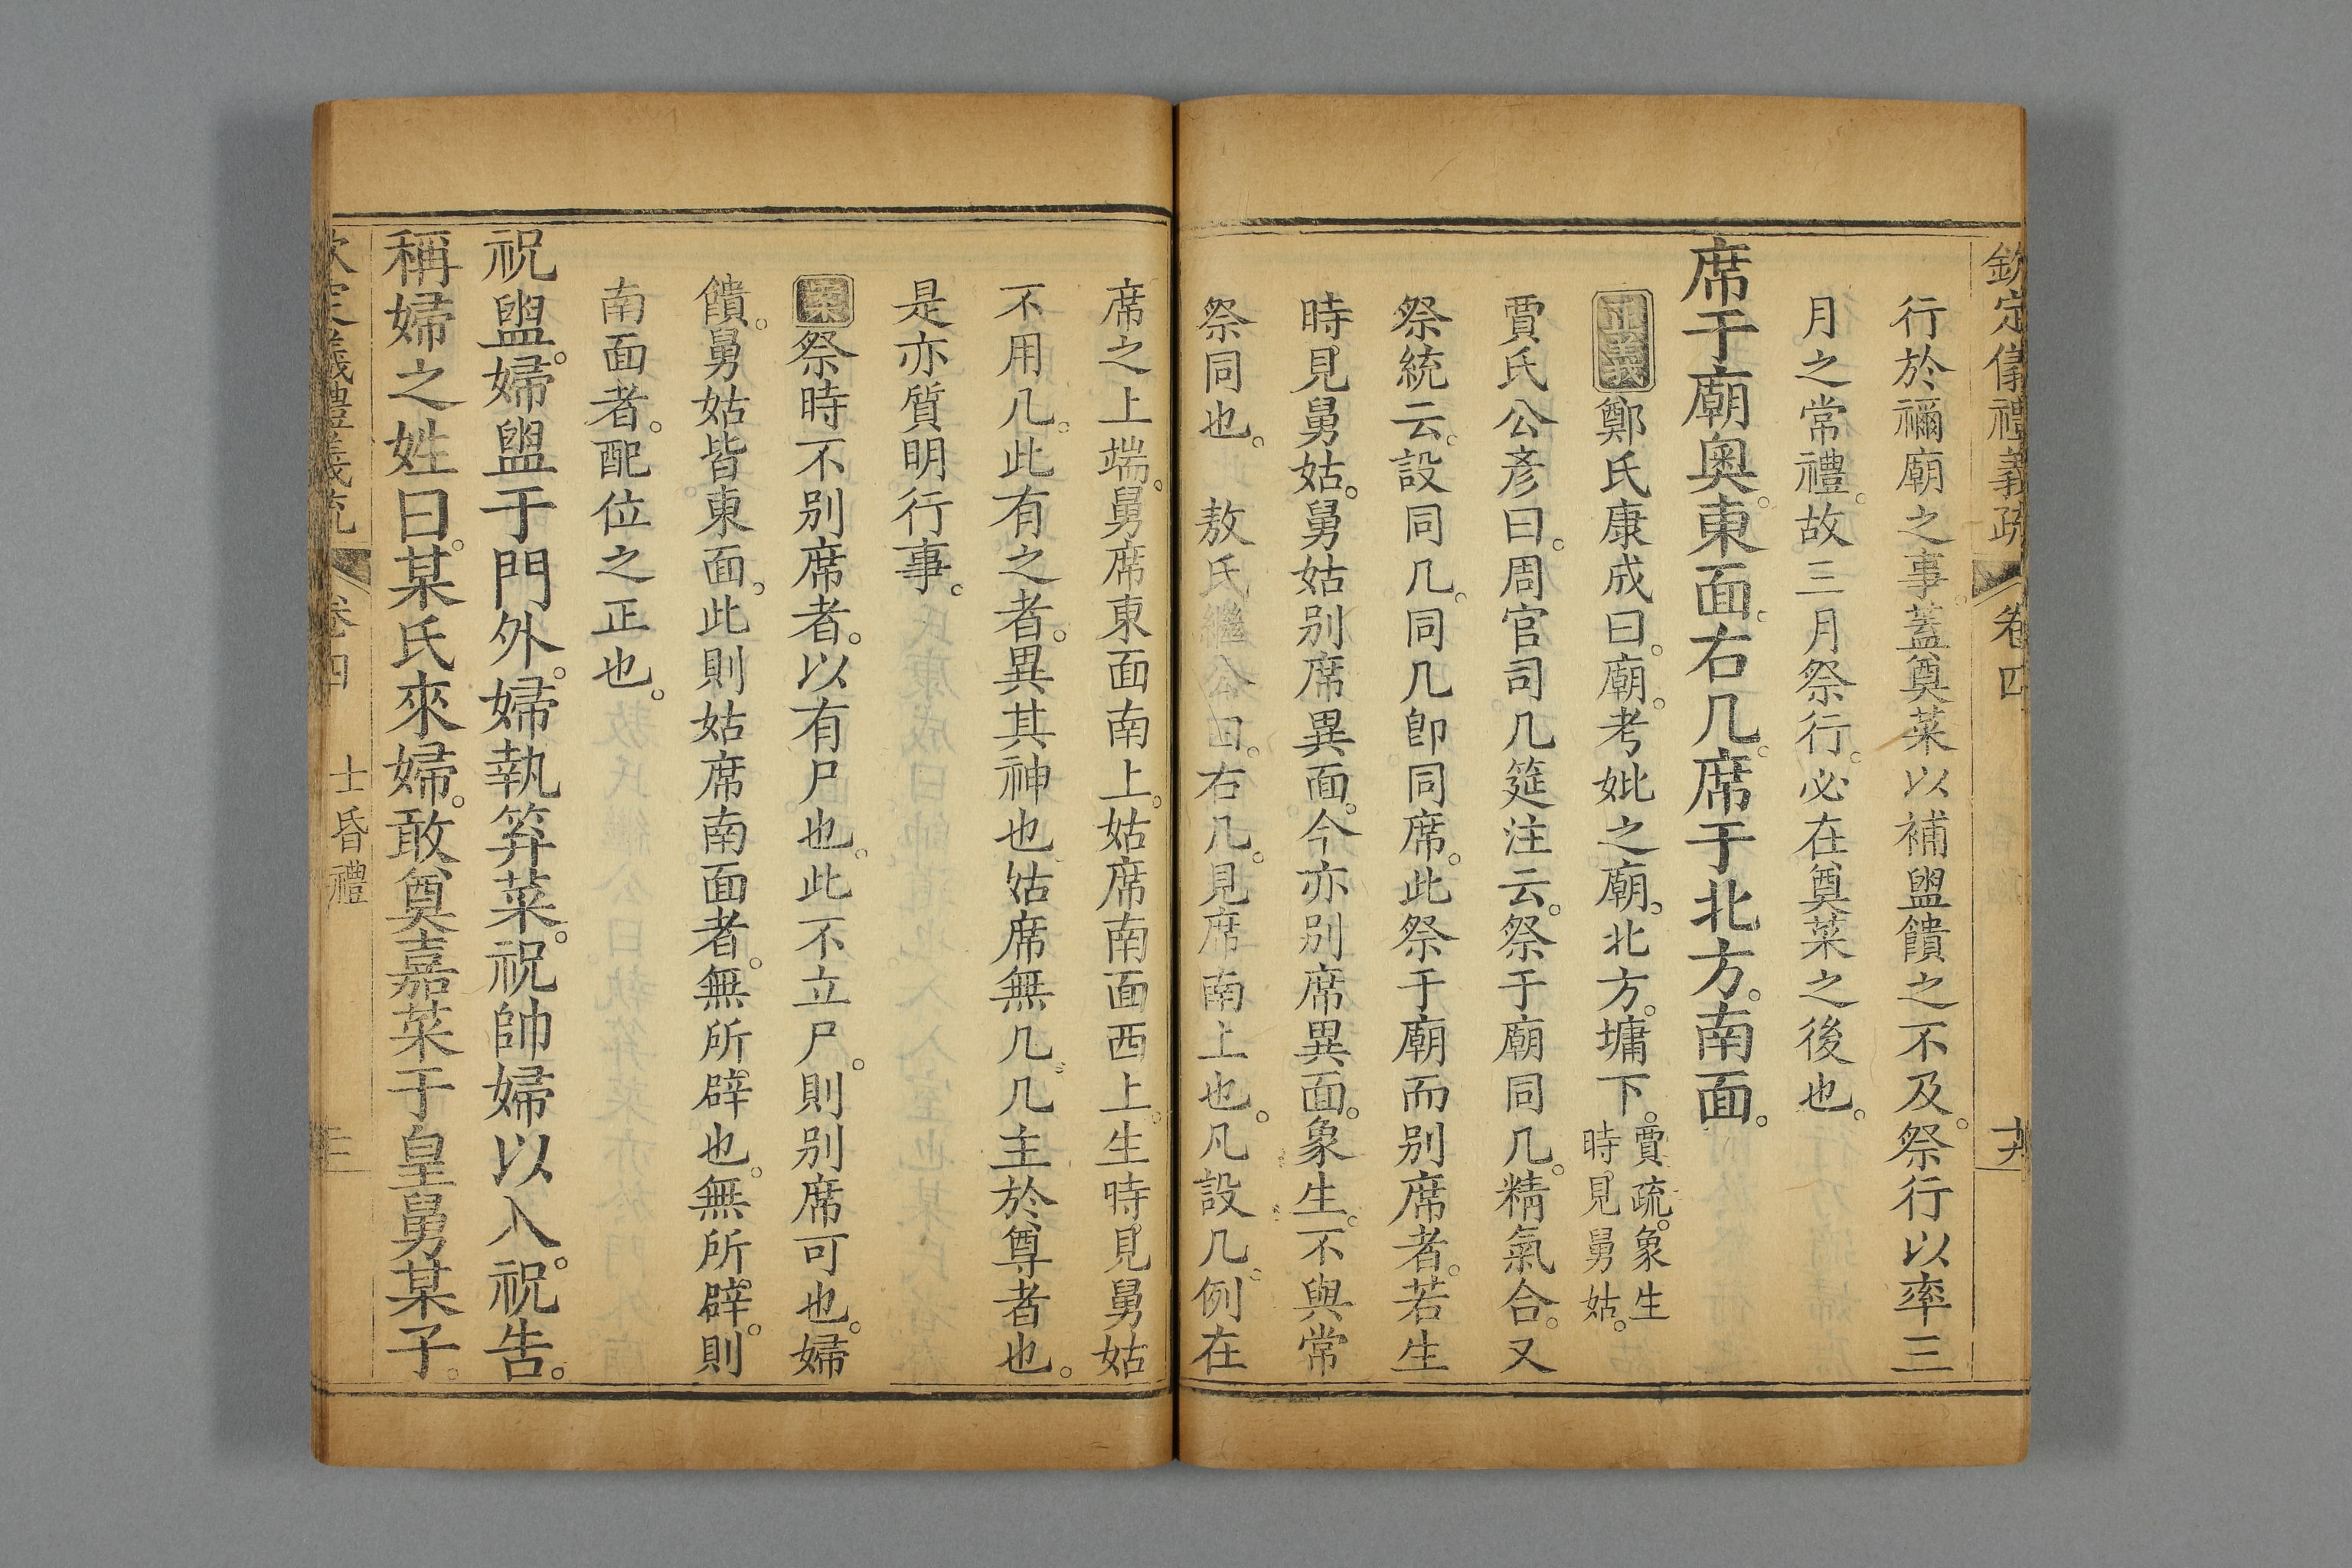 欽定儀禮義疏 卷四
行於禰廟之事蓋奠菜以補盥饋之不及。祭行以率三
月之常禮。故三月祭行。必在奠菜之後也。
席于廟奧。東面。右几。席于北方。南面。
正義鄭氏康成曰。廟。考妣之廟。北方。墉下。賈疏。象生時。見舅姑。
賈氏公彥曰。周官司几筵注云。祭于廟同几。精氣合。又
祭統云。設同几。同几卽同席。此祭于廟而別席者。若生
時。見舅姑。舅姑別席異面。今亦別席異面。象生。不與常
祭同也。 敖氏繼公曰。右几。見席南上也。凡設几。例在
席之上端。舅席東面南上。姑席南面西上。生時。見舅姑
不用几。此有之者。異其神也。姑席無几。几主於尊者也。
是亦質明行事。
案祭時不別席者。以有尸也。此不立尸。則別席可也。婦
饋。舅姑皆東面。此則姑席南面者。無所辟也。無所辟。則
南面者。配位之正也。
祝盥。婦盥于門外。婦執笲菜。祝帥婦以入。祝告。
稱婦之姓曰。某氏來婦。敢奠嘉菜于皇舅某子。
欽定儀禮義疏 卷四 士昏禮